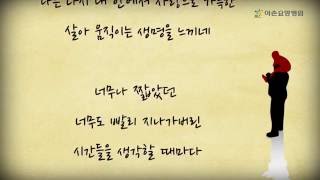 이손요양병원
나는 다시 내 안에서 사랑으로 가득한
살아 움직이는 생명을 느끼네
너무나 짧았던
너무도 빨리 지나가버린
시간들을 생각할 때마다